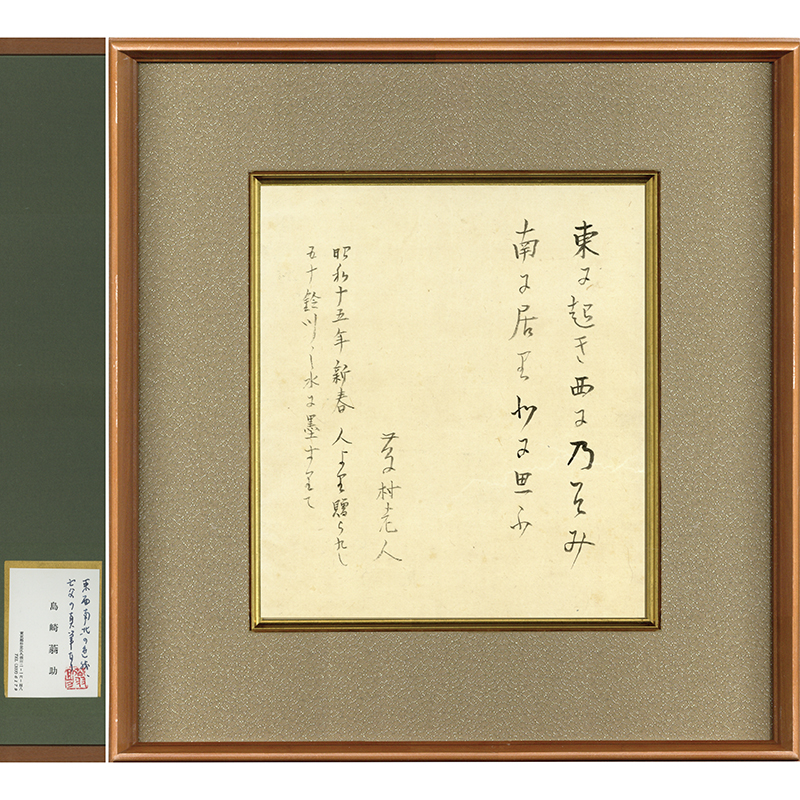 東に起き西に乃ぞみ
南に居り北に思ふ
藤村老人
昭和十五年新春 人より贈られし
五十鈴川の水に墨すりて
東西南北の色紙
亡父の真筆
島崎蓊助